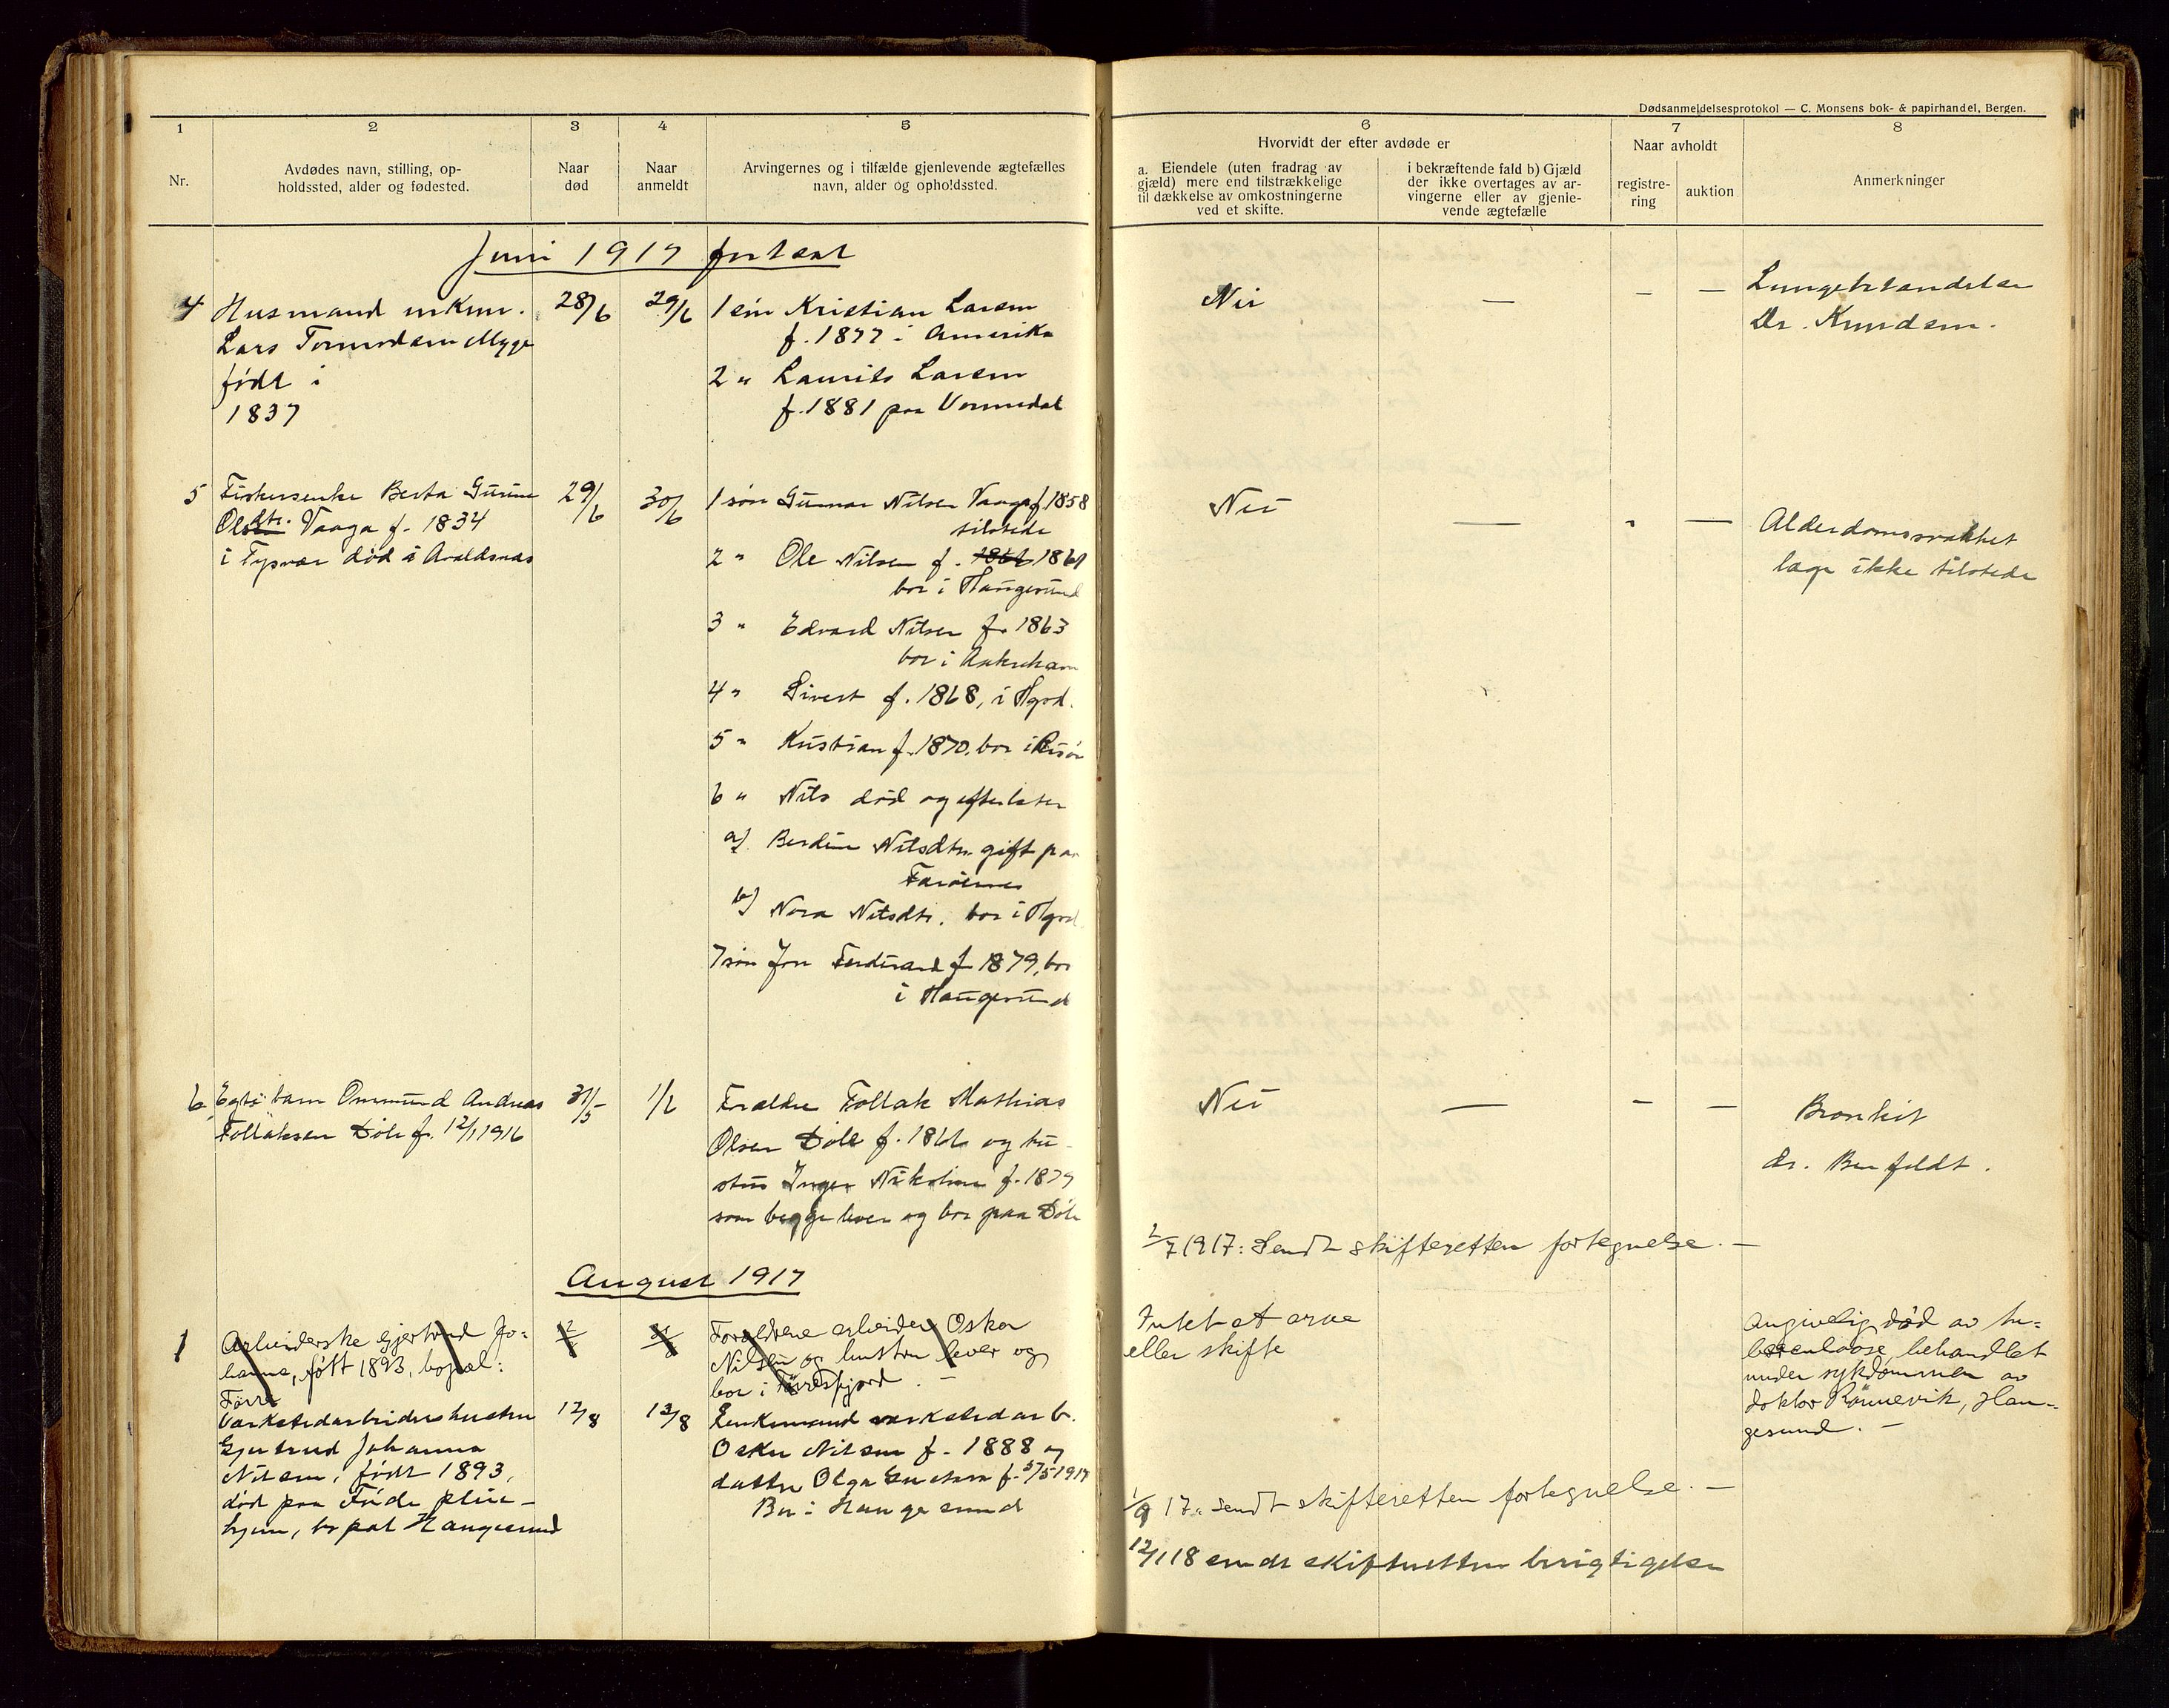 Dødsanmeldelsesprotokol — C. Monsens bok- & papirhandel, Bergen.
1
2
3
4
5
6
7
8
Nr.
Avdødes navn, stilling, op-
holdssted, alder og fødested.
Naar
død
Naar
anmeldt
Arvingernes og i tilfælde gjenlevende ægtefælles
navn, alder og opholdssted.
Hvorvidt der efter avdøde er
a. Eiendele (uten fradrag av
gjæld) mere end tilstrækkelige
til dækkelse av omkostningerne
ved et skifte.
i bekræftende fald b) Gjæld
der ikke overtages av ar-
vingerne eller av gjenle-
vende ægtefælle
Naar avholdt
registre-
ring
auktion
Anmerkninger
Juni 1917 fortsat
4 Husmand enkem.
Lars Tormodsen Myge
født i
1837
28/6
29/6
1 søn Kristian Larsen
f. 1877 i Amerika
2 " Laurits Larsen
f. 1881 paa Vormedal
Nei — — —
Lungebetændelse
Dr. Knudsen.
5 Fiskerenke Berta Gurine
Olsdtr. Vaaga f. 1834
i Tysvær død i Avaldsnæs
29/6
30/6
1 søn Gunnar Nilsen Vaaga f. 1858
tilstede
2 " Ole Nilsen f. 1861
bor i Haugesund
3 " Edvard Nilsen f. 1863
bor i
4 " Sivert f. 1868, i Hgsd.
5 " Kristian f. 1870. bor i Risør
6 " Nils død og efterlater
a) Berdine Nilsdtr. gift paa
Færøerne
b) Nora Nilsdtr. bor i Hgsd
7 søn Jon Ferdinand f 1879, bor
i Haugesund
Nei — - —
Alderdomssvakhet
læge ikke tilstede
6 Egte barn Ommund Andreas
Follaksen Døle f. 12/1 1916
31/5
1/6
Forældre Follak Mathias
Olsen Døle f. 1866 og hu-
stru Inger Nikoline f. 1877
som begge lever og bor paa Døle
Nei — - —
Bronkit
dr. Benfeldt.
2/7 1917: Sendt skifteretten fortegnelse. —
August 1917
1 Arbeiderske Gjertrud Jo-
hanna, født 1893, bopæl:
Førre
Forældrene arbeider Oskar
Nilsen og hustru lever og
bor i Førresfjord. —
Intet at arve
eller skifte
Angivelig død av tu-
berculose, behandlet
under sykdommen av
doktor Rönnevik, Hau-
gesund. —
Verkstedarbeidershustru
Gjertrud Johanna
Nilsen, født 1893,
død paa Føide pleie-
hjem, bopæl Haugesund
12/8
13/8
Enkemand verkstedarb.
Oskar Nilsen f. 1888 og
datter Olga f. 5/5 1917
Bor i Haugesund
1/9 17: sendt skifteretten fortegnelse. —
12/1 18 sendt skifteretten berigtigelse